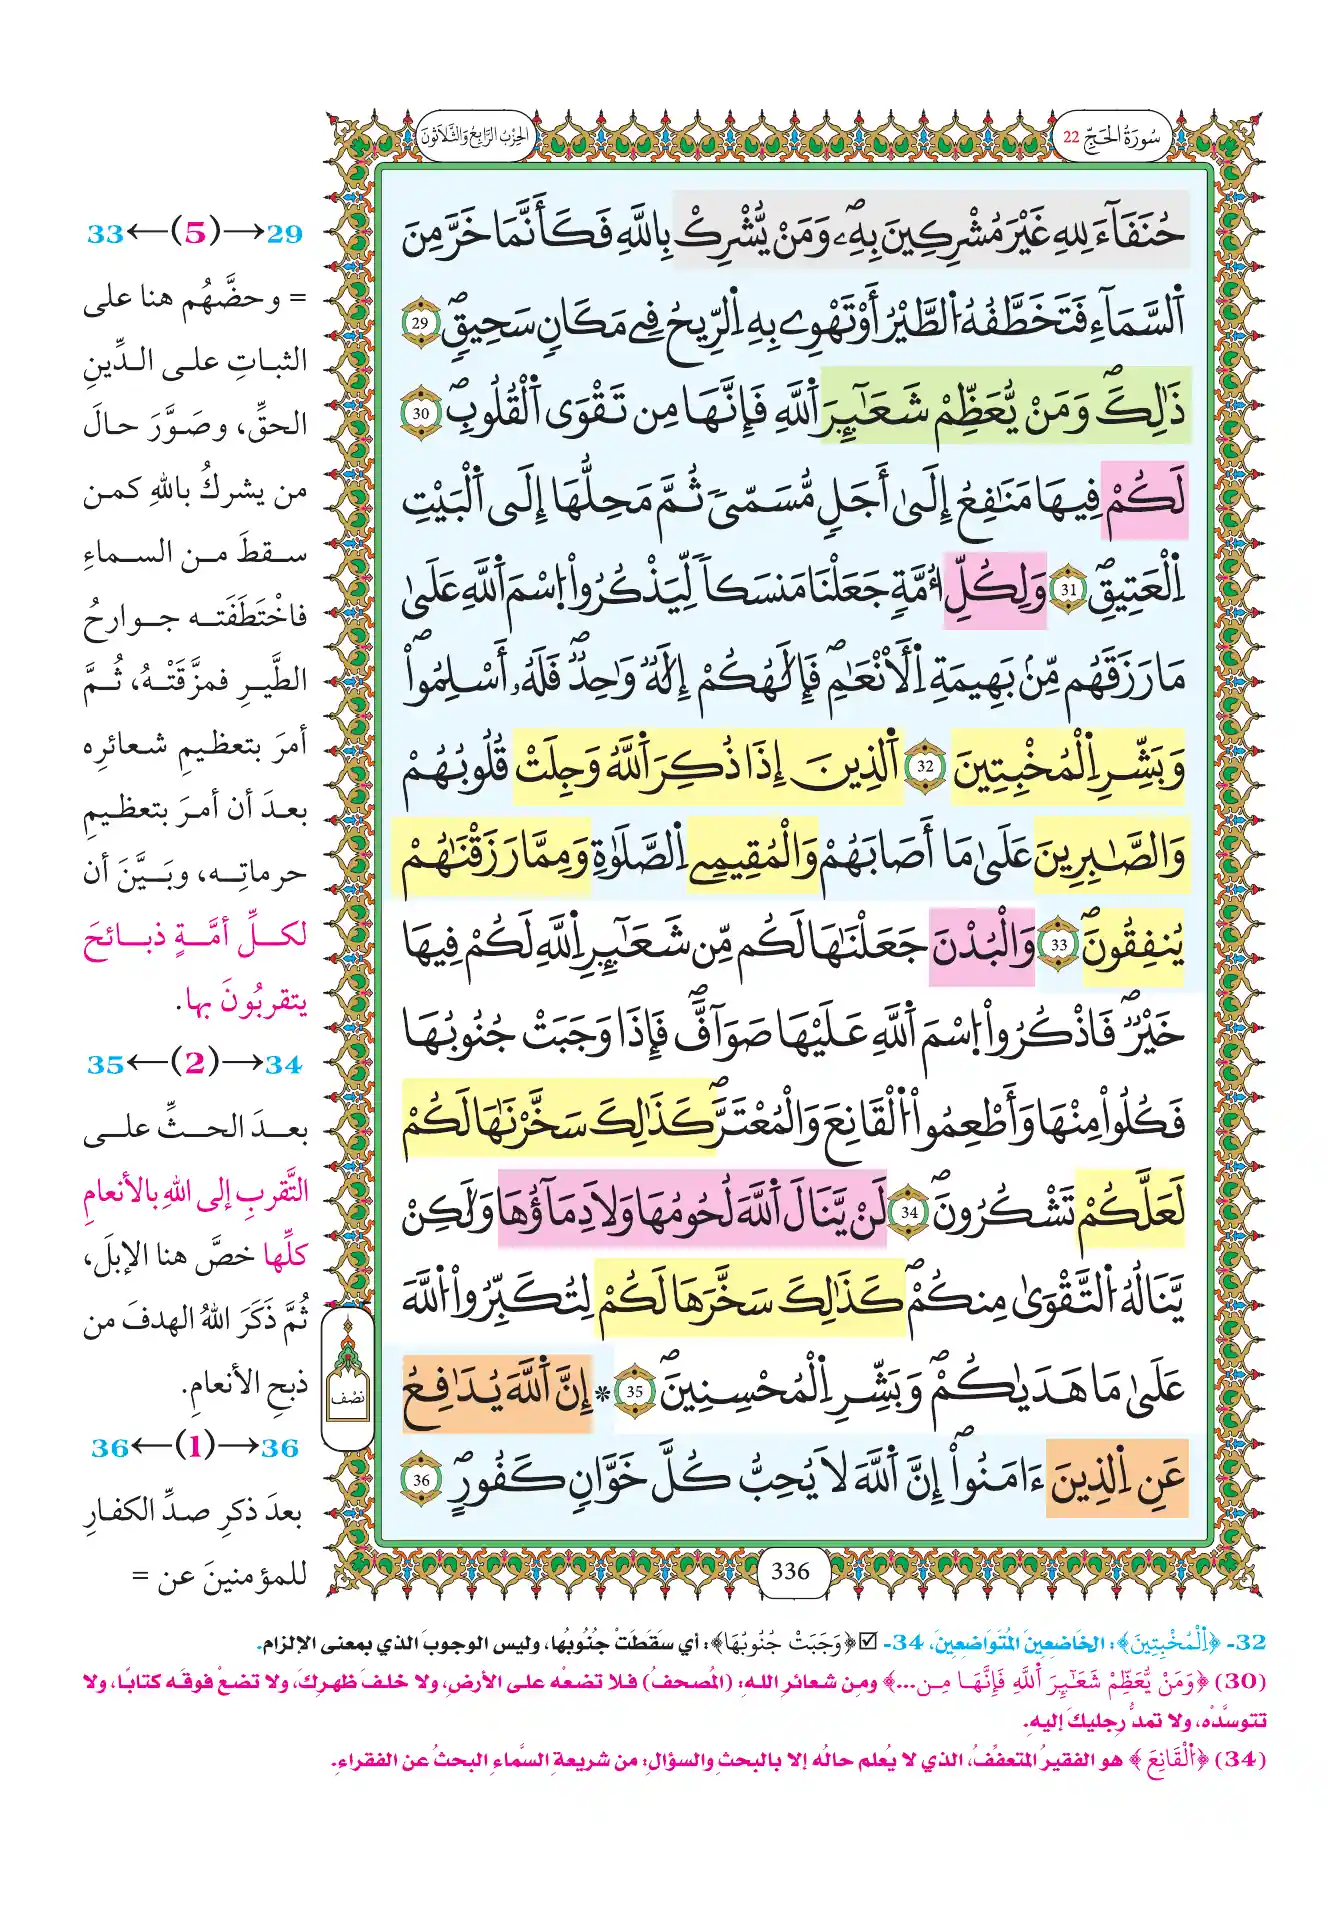 سُورَةُ الحَجِّ 22
الحِزْبُ الرَّابِعُ وَالثَّلَاثُونَ
حُنَفَآءَ لِلهِ غَيْرَ مُشْرِكِينَ بِهِۦۖ وَمَنْ يُّشْرِكْ بِاللَّهِ فَكَأَنَّمَا خَرَّ مِنَ
اَ۬لسَّمَآءِ فَتَخَطَّفُهُ اُ۬لطَّيْرُ أَوْ تَهْوِے بِهِ اِ۬لرِّيحُ فِے مَكَانٖ سَحِيقٖۖ 29
ذَٰلِكَۖ وَمَنْ يُّعَظِّمْ شَعَٰٓئِرَ اَ۬للَّهِ فَإِنَّهَا مِن تَقْوَى اَ۬لْقُلُوبِۖ 30
لَكُمْ فِيهَا مَنَٰفِعُ إِلَىٰٓ أَجَلٖ مُّسَمّىٗ ثُمَّ مَحِلُّهَا إِلَى اَ۬لْبَيْتِ
اِ۬لْعَتِيقِۖ 31 وَلِكُلِّ أُمَّةٖ جَعَلْنَا مَنسَكاٗ لِّيَذْكُرُواْ اُ۪سْمَ اَ۬للَّهِ عَلَىٰ
مَا رَزَقَهُم مِّنۢ بَهِيمَةِ اِ۬لَانْعَٰمِۖ فَإِلَٰهُكُمْ إِلَٰهٞ وَٰحِدٞۖ فَلَهُۥٓ أَسْلِمُواْۖ
وَبَشِّرِ اِ۬لْمُخْبِتِينَ 32 اَ۬لَّذِينَ إِذَا ذُكِرَ اَ۬للَّهُ وَجِلَتْ قُلُوبُهُمْ
وَالصَّٰبِرِينَ عَلَىٰ مَا أَصَابَهُمْ وَالْمُقِيمِے اِ۬لصَّلَوٰةِ وَمِمَّا رَزَقْنَٰهُمْ
يُنفِقُونَۖ 33 وَالْبُدْنَ جَعَلْنَٰهَا لَكُم مِّن شَعَٰٓئِرِ اِ۬للَّهِ لَكُمْ فِيهَا
خَيْرٞۖ فَاذْكُرُواْ اُ۪سْمَ اَ۬للَّهِ عَلَيْهَا صَوَآفَّۖ فَإِذَا وَجَبَتْ جُنُوبُهَا
فَكُلُواْ مِنْهَا وَأَطْعِمُواْ اُ۬لْقَانِعَ وَالْمُعْتَرَّۖ كَذَٰلِكَ سَخَّرْنَٰهَا لَكُمْ
لَعَلَّكُمْ تَشْكُرُونَۖ 34 لَنْ يَّنَالَ اَ۬للَّهَ لُحُومُهَا وَلَا دِمَآؤُهَا وَلَٰكِنْ
يَّنَالُهُ اُ۬لتَّقْوَىٰ مِنكُمْۖ كَذَٰلِكَ سَخَّرَهَا لَكُمْ لِتُكَبِّرُواْ اُ۬للَّهَ
عَلَىٰ مَا هَدَىٰكُمْۖ وَبَشِّرِ اِ۬لْمُحْسِنِينَۖ 35 * إِنَّ اَ۬للَّهَ يُدَٰفِعُ
عَنِ اِ۬لذِينَ ءَامَنُواْۖ إِنَّ اَ۬للَّهَ لَا يُحِبُّ كُلَّ خَوَّانٖ كَفُورٍۖ 36
نصف
336
29→(5)←33
= وحضَّهُم هنا على
الثباتِ على الدِّينِ
الحقِّ، وصَوَّرَ حالَ
من يشركُ باللهِ كمن
سقطَ من السماءِ
فاخْتَطَفَته جوارحُ
الطَّيرِ فمزَّقَتْهُ، ثُمَّ
أمرَ بتعظيمِ شعائرِه
بعدَ أن أمرَ بتعظيمِ
حرماتِه، وبَيَّنَ أن
لكلِّ أمَّةٍ ذبائحَ
يتقربُونَ بها.
34→(2)←35
بعدَ الحثِّ على
التَّقربِ إلى اللهِ بالأنعامِ
كلِّها خصَّ هنا الإبلَ،
ثُمَّ ذَكَرَ اللهُ الهدفَ من
ذبحِ الأنعامِ.
36→(1)←36
بعدَ ذكرِ صدِّ الكفارِ
للمؤمنينَ عن =
32- ﴿اِ۬لْمُخْبِتِينَ﴾: الخَاضعِينَ المُتَوَاضعِينَ، 34- ☑ ﴿وَجَبَتْ جُنُوبُهَا﴾: أي سَقَطَتْ جُنُوبُها، وليس الوجوبَ الذي بمعنى الإلزام.
(30) ﴿وَمَنْ يُّعَظِّمْ شَعَٰٓئِرَ اَ۬للَّهِ فَإِنَّهَا مِن...﴾ ومِن شعائرِ اللهِ: (المُصحفُ) فلا تضعْه على الأرضِ، ولا خلفَ ظهرِكَ، ولا تضعْ فوقَه كتابًا، ولا
تتوسَّدْه، ولا تمدُّ رجليكَ إليهِ.
(34) ﴿اُ۬لْقَانِعَ﴾ هو الفقيرُ المتعفِّفُ، الذي لا يُعلم حالُه إلا بالبحثِ والسؤال: من شريعةِ السَّماءِ البحثُ عن الفقراءِ.